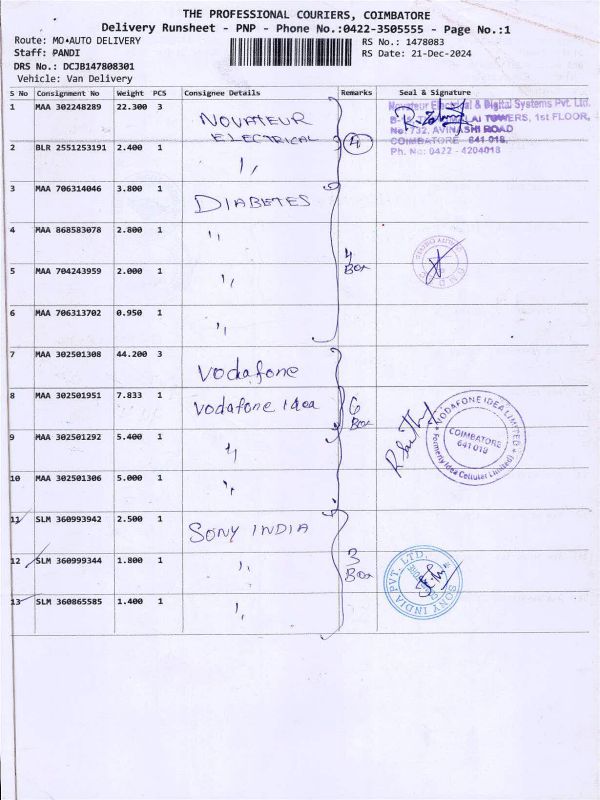 THE PROFESSIONAL COURIERS, COIMBATORE
Delivery Runsheet - PNP - Phone No.:0422-3505555 - Page No.:1
Route: MO•AUTO DELIVERY
RS No.: 1478083
Staff: PANDI
RS Date: 21-Dec-2024
DRS No.: DCJB147808301
Vehicle: Van Delivery
S No Consignment No Weight PCS Consignee Details Remarks Seal & Signature
1 MAA 302248289 22.300 3 NOVATEUR ELECTRICAL
Novateur Electrical & Digital Systems Pvt. Ltd.
TOWERS, 1st FLOOR,
No 732, AVINASHI ROAD
COIMBATORE - 641 018.
Ph. No: 0422 - 4204018
2 BLR 2551253191 2.400 1 " 4
3 MAA 706314046 3.800 1 DIABETES
4 MAA 868583078 2.800 1 "
4 Box
5 MAA 704243959 2.000 1 "
6 MAA 706313702 0.950 1 "
7 MAA 302501308 44.200 3 Vodafone
8 MAA 302501951 7.833 1 Vodafone idea 6 Box
VODAFONE IDEA LIMITED
COIMBATORE
641 018
(Formerly Idea Cellular Limited)
9 MAA 302501292 5.400 1 "
10 MAA 302501306 5.000 1 "
11 SLM 360993942 2.500 1 SONY INDIA
12 SLM 360999344 1.800 1 " 3 Box
SONY INDIA PVT. LTD.
13 SLM 360865585 1.400 1 "